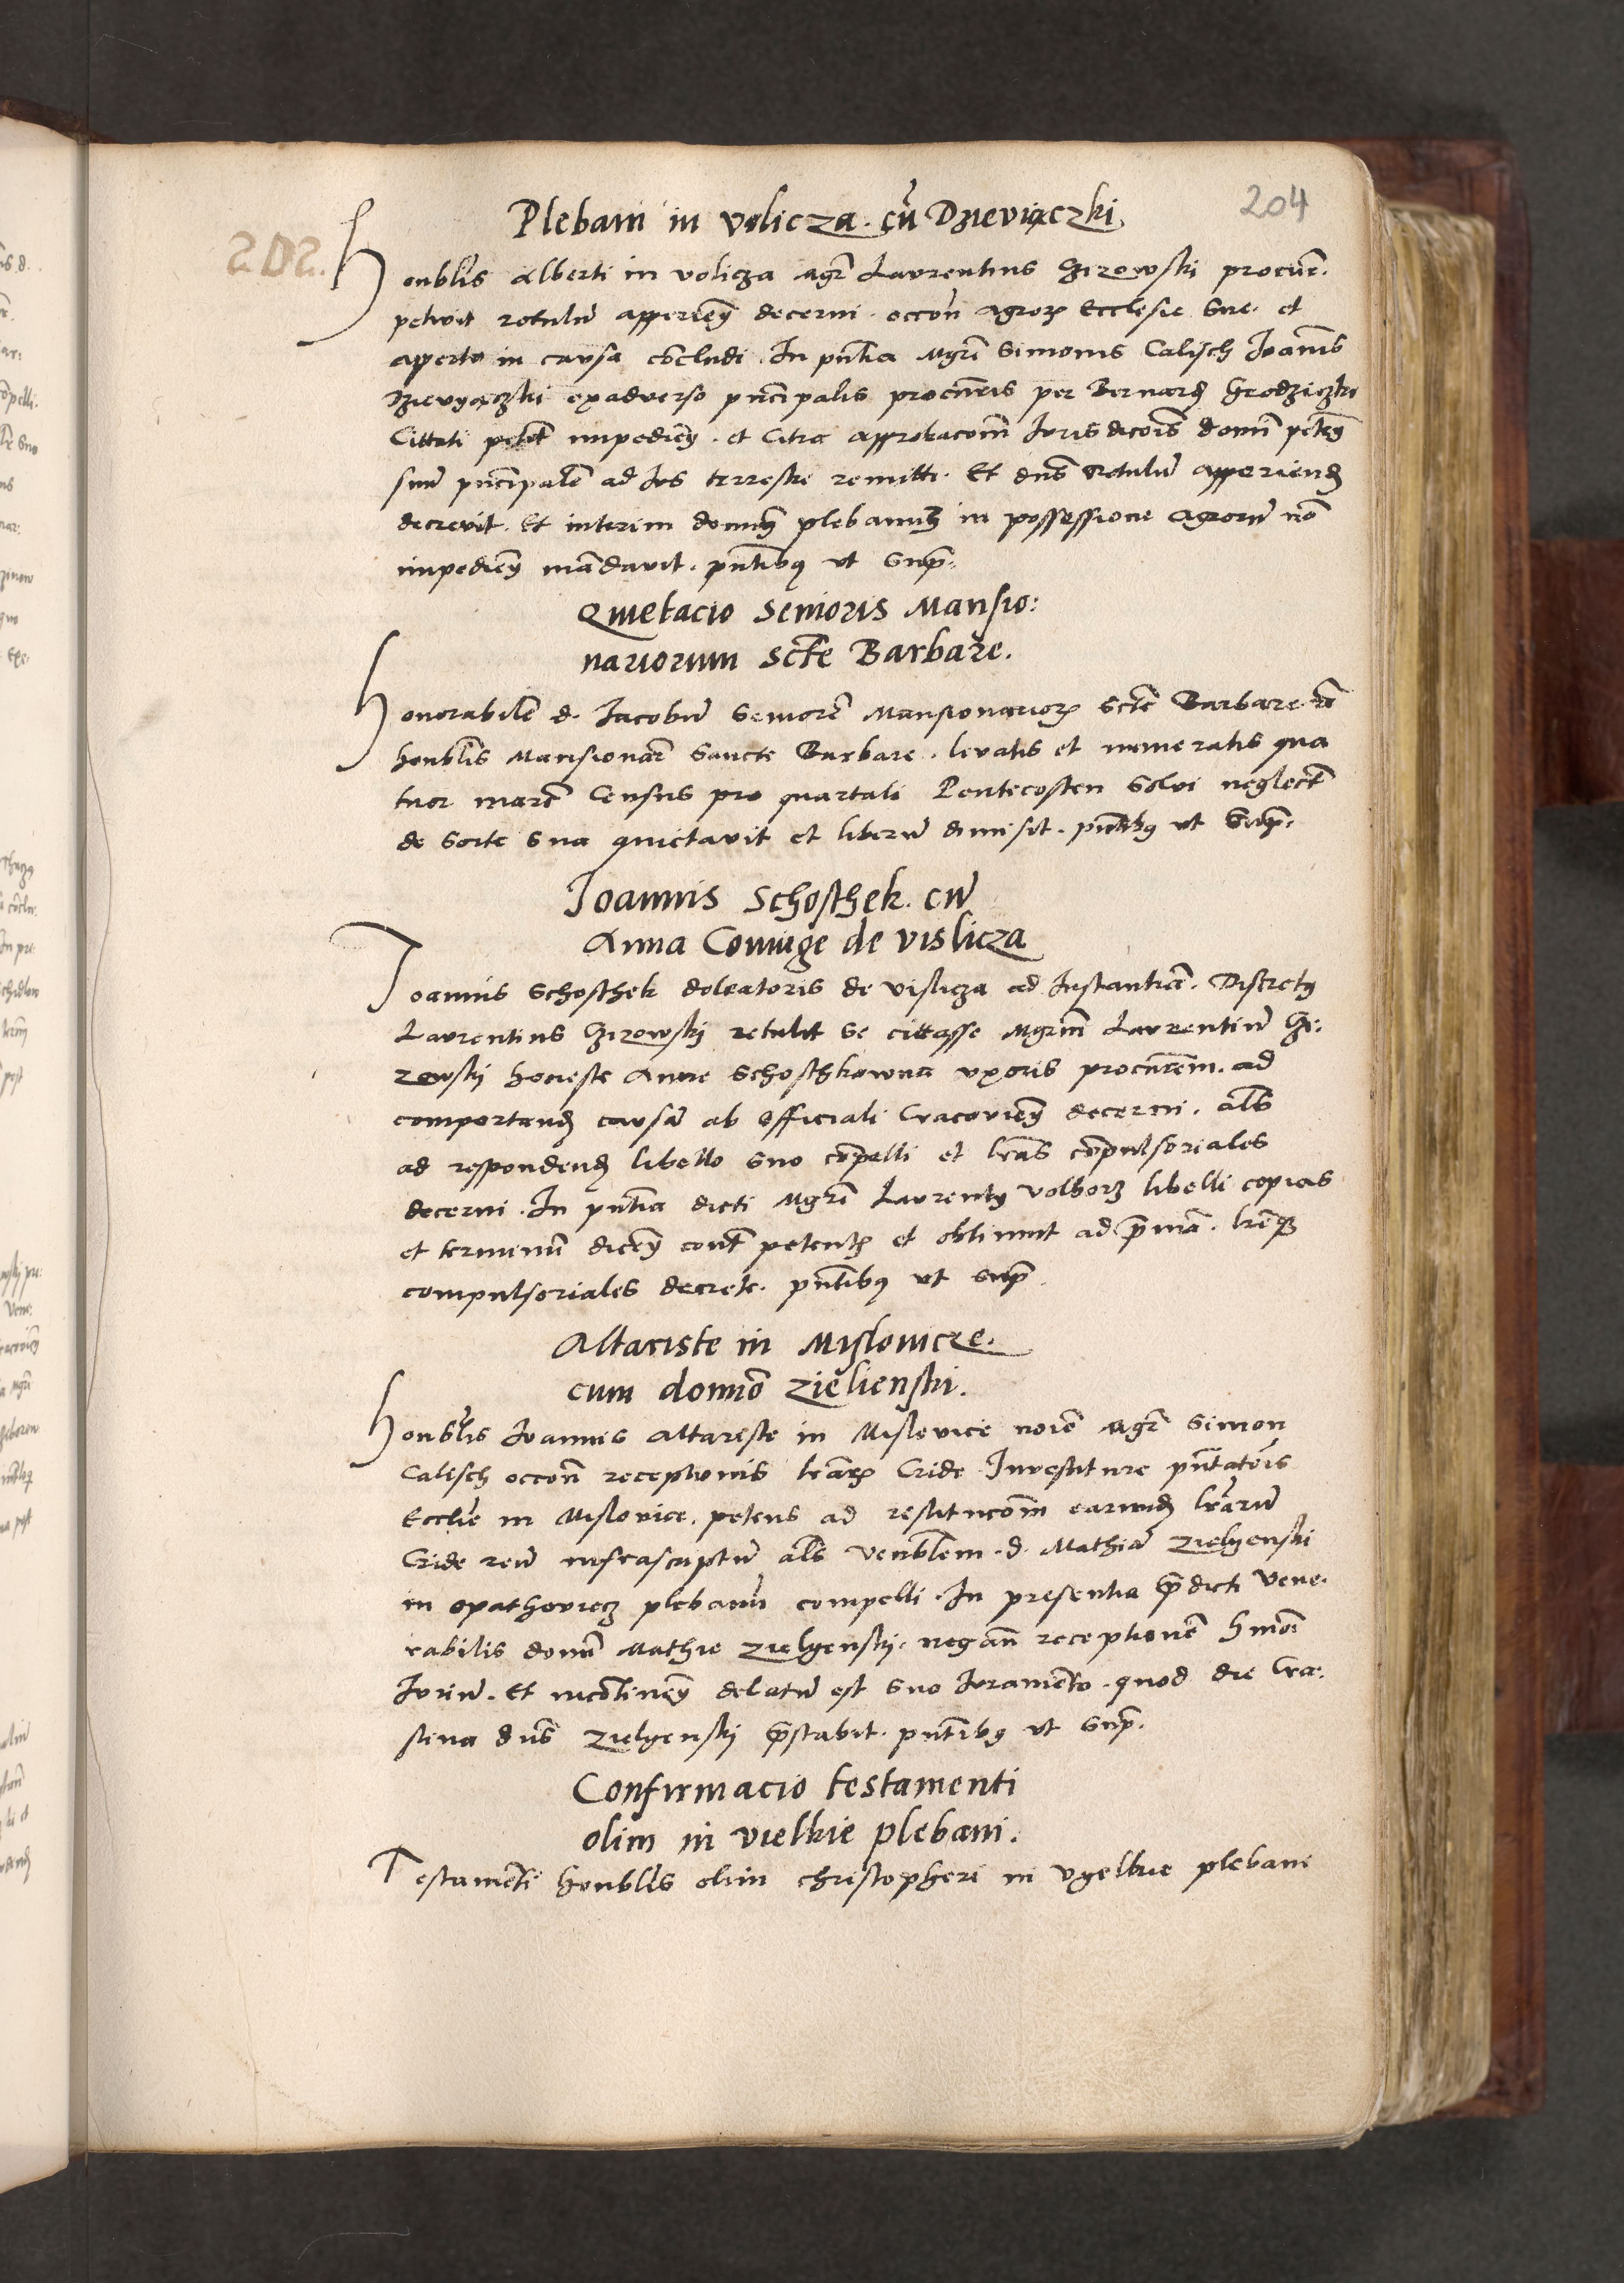 204
Plebani in volicza. cū Dzieviączki
Honblis Alberti in volicza Mgr Laurentius Gizowski procur.
petivit rotulū apperieñ decerni. occoñ agrorꝫ Ecclesie Sue. et
aperto in causa cōcludi. In pñtia Mgri Simonis Calisch Joānis
Dzievyąçzki exadverso pñcipalis procūris per Bernarđ Grodzieczki
Cittati petēt impedieñ. et Citra approbacoēm Jurisdicoīs domī
suū pñcipalē ad Jus terrestre remitti. Et dñs Rotulū apperienđ
decrevit. Et interim domiñ plebanū in possessione agrorū nō
impedieñ mādavit. pñtibꝰ ut Supr.
Quietacio Senioris Mansio:
nariorum Scte Barbare.
Honorabilē d. Jacobū Seniorē Mansionariorꝫ Scte Barbare
honblis Mansionari Sancte Barbare. levatis et numeratis qua
tuor marcs Census pro quartali Pentecosten Solvi neglect
de Sorte Sua quietavit et liberū dimisit. pñtibꝰ ut Supr.
Joannis Schosthek. cū
Anna Coniuge de vislicza
Joannis Schosthek doleatoris de visliçza ad Instantiā. Discretꝰ
Laurentius Gizowskj retulit Se cittasse Mgrūm Laurentiū Gi.
zowskj honeste Anne Schosthkowna uxoris procūrem. ad
comportanđ causā ab Officiali Cracovieñ decerni. als
ad respondenđ libello Suo cōpelli et lras cōpulsoriales
decerni. In pñtia dicti Mgri Laurentÿ volborz libelli copias
et terminū diceñ cont petentꝫ et obtinuit ad prmā. lreqꝫ
compulsoriales decrete. pñtibꝰ ut Supr
Altariste in Myslovicze.
cum domiō Zielienski.
Honblis Joannis Altareste in Mislovice noīe Mgr Simon
Calisch occoñ receptionis lrarꝫ Cride Investiture pñtatoīs
Ecclie in Mislovice. petens ad restitucoēm earunđ lrarū
Cride reū infrascriptū als venblem. d. Mathiā Zielyenski
in opathoviecz plebanū compelli. In presentia prdicti Vene.
rabilis domī Mathie Zielyenskj. negañ receptionē hmōi
Juriū. Et incōtineñ delatū est Suo Juramēto. quod die Cra.
stina dñs Zielyenskj prstabit. pñtibꝰ ut Supr.
Confirmacio testamenti
olim in vielkie plebani.
Testamēti honblis olim christopheri in vyelkie plebani